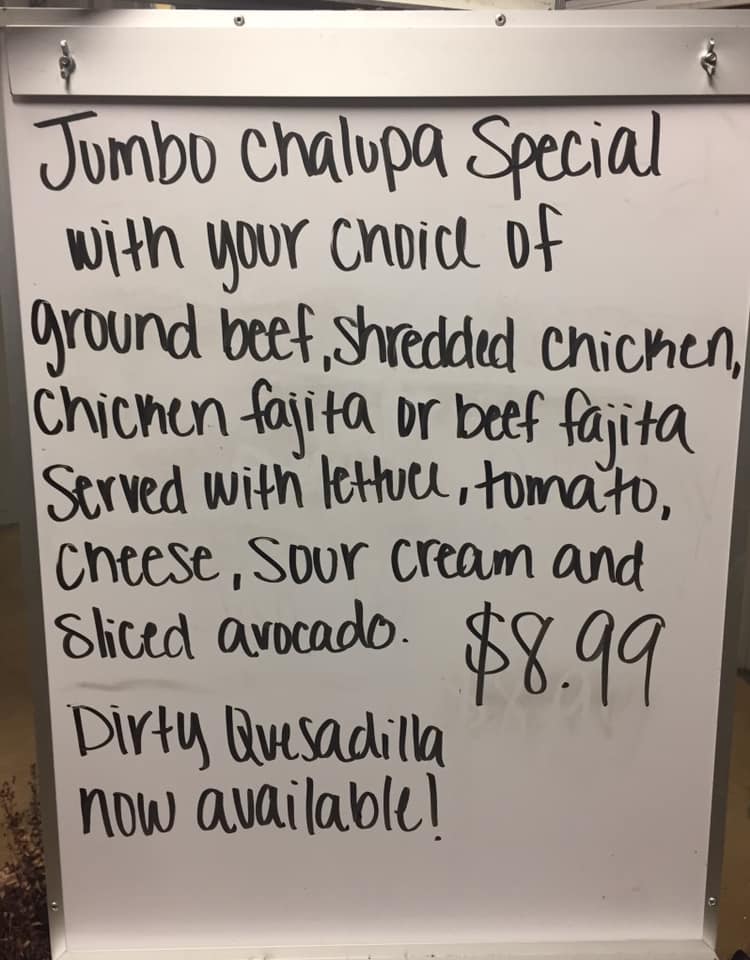 Jumbo Chalupa Special
with your choice of
ground beef, shredded chicken,
chicken fajita or beef fajita
Served with lettuce, tomato,
cheese, sour cream and
sliced avocado. $8.99
Dirty Quesadilla
now available!